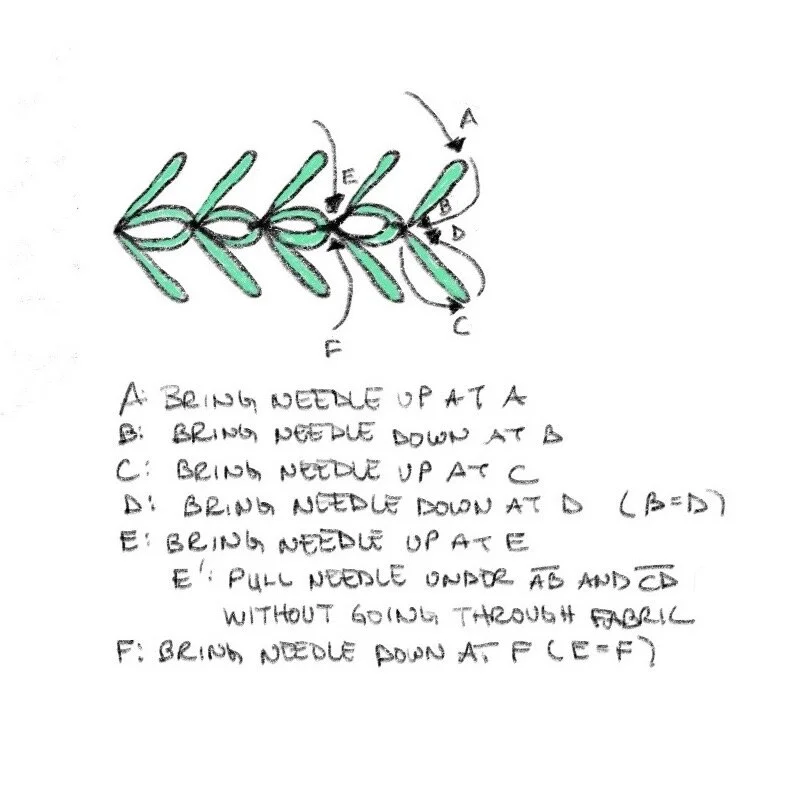 A
E
B
D
C
F
A: BRING NEEDLE UP AT A
B: BRING NEEDLE DOWN AT B
C: BRING NEEDLE UP AT C
D: BRING NEEDLE DOWN AT D (B=D)
E: BRING NEEDLE UP AT E
E': PULL NEEDLE UNDER A̅B̅ AND C̅D̅
WITHOUT GOING THROUGH FABRIC
F: BRING NEEDLE DOWN AT F (E=F)